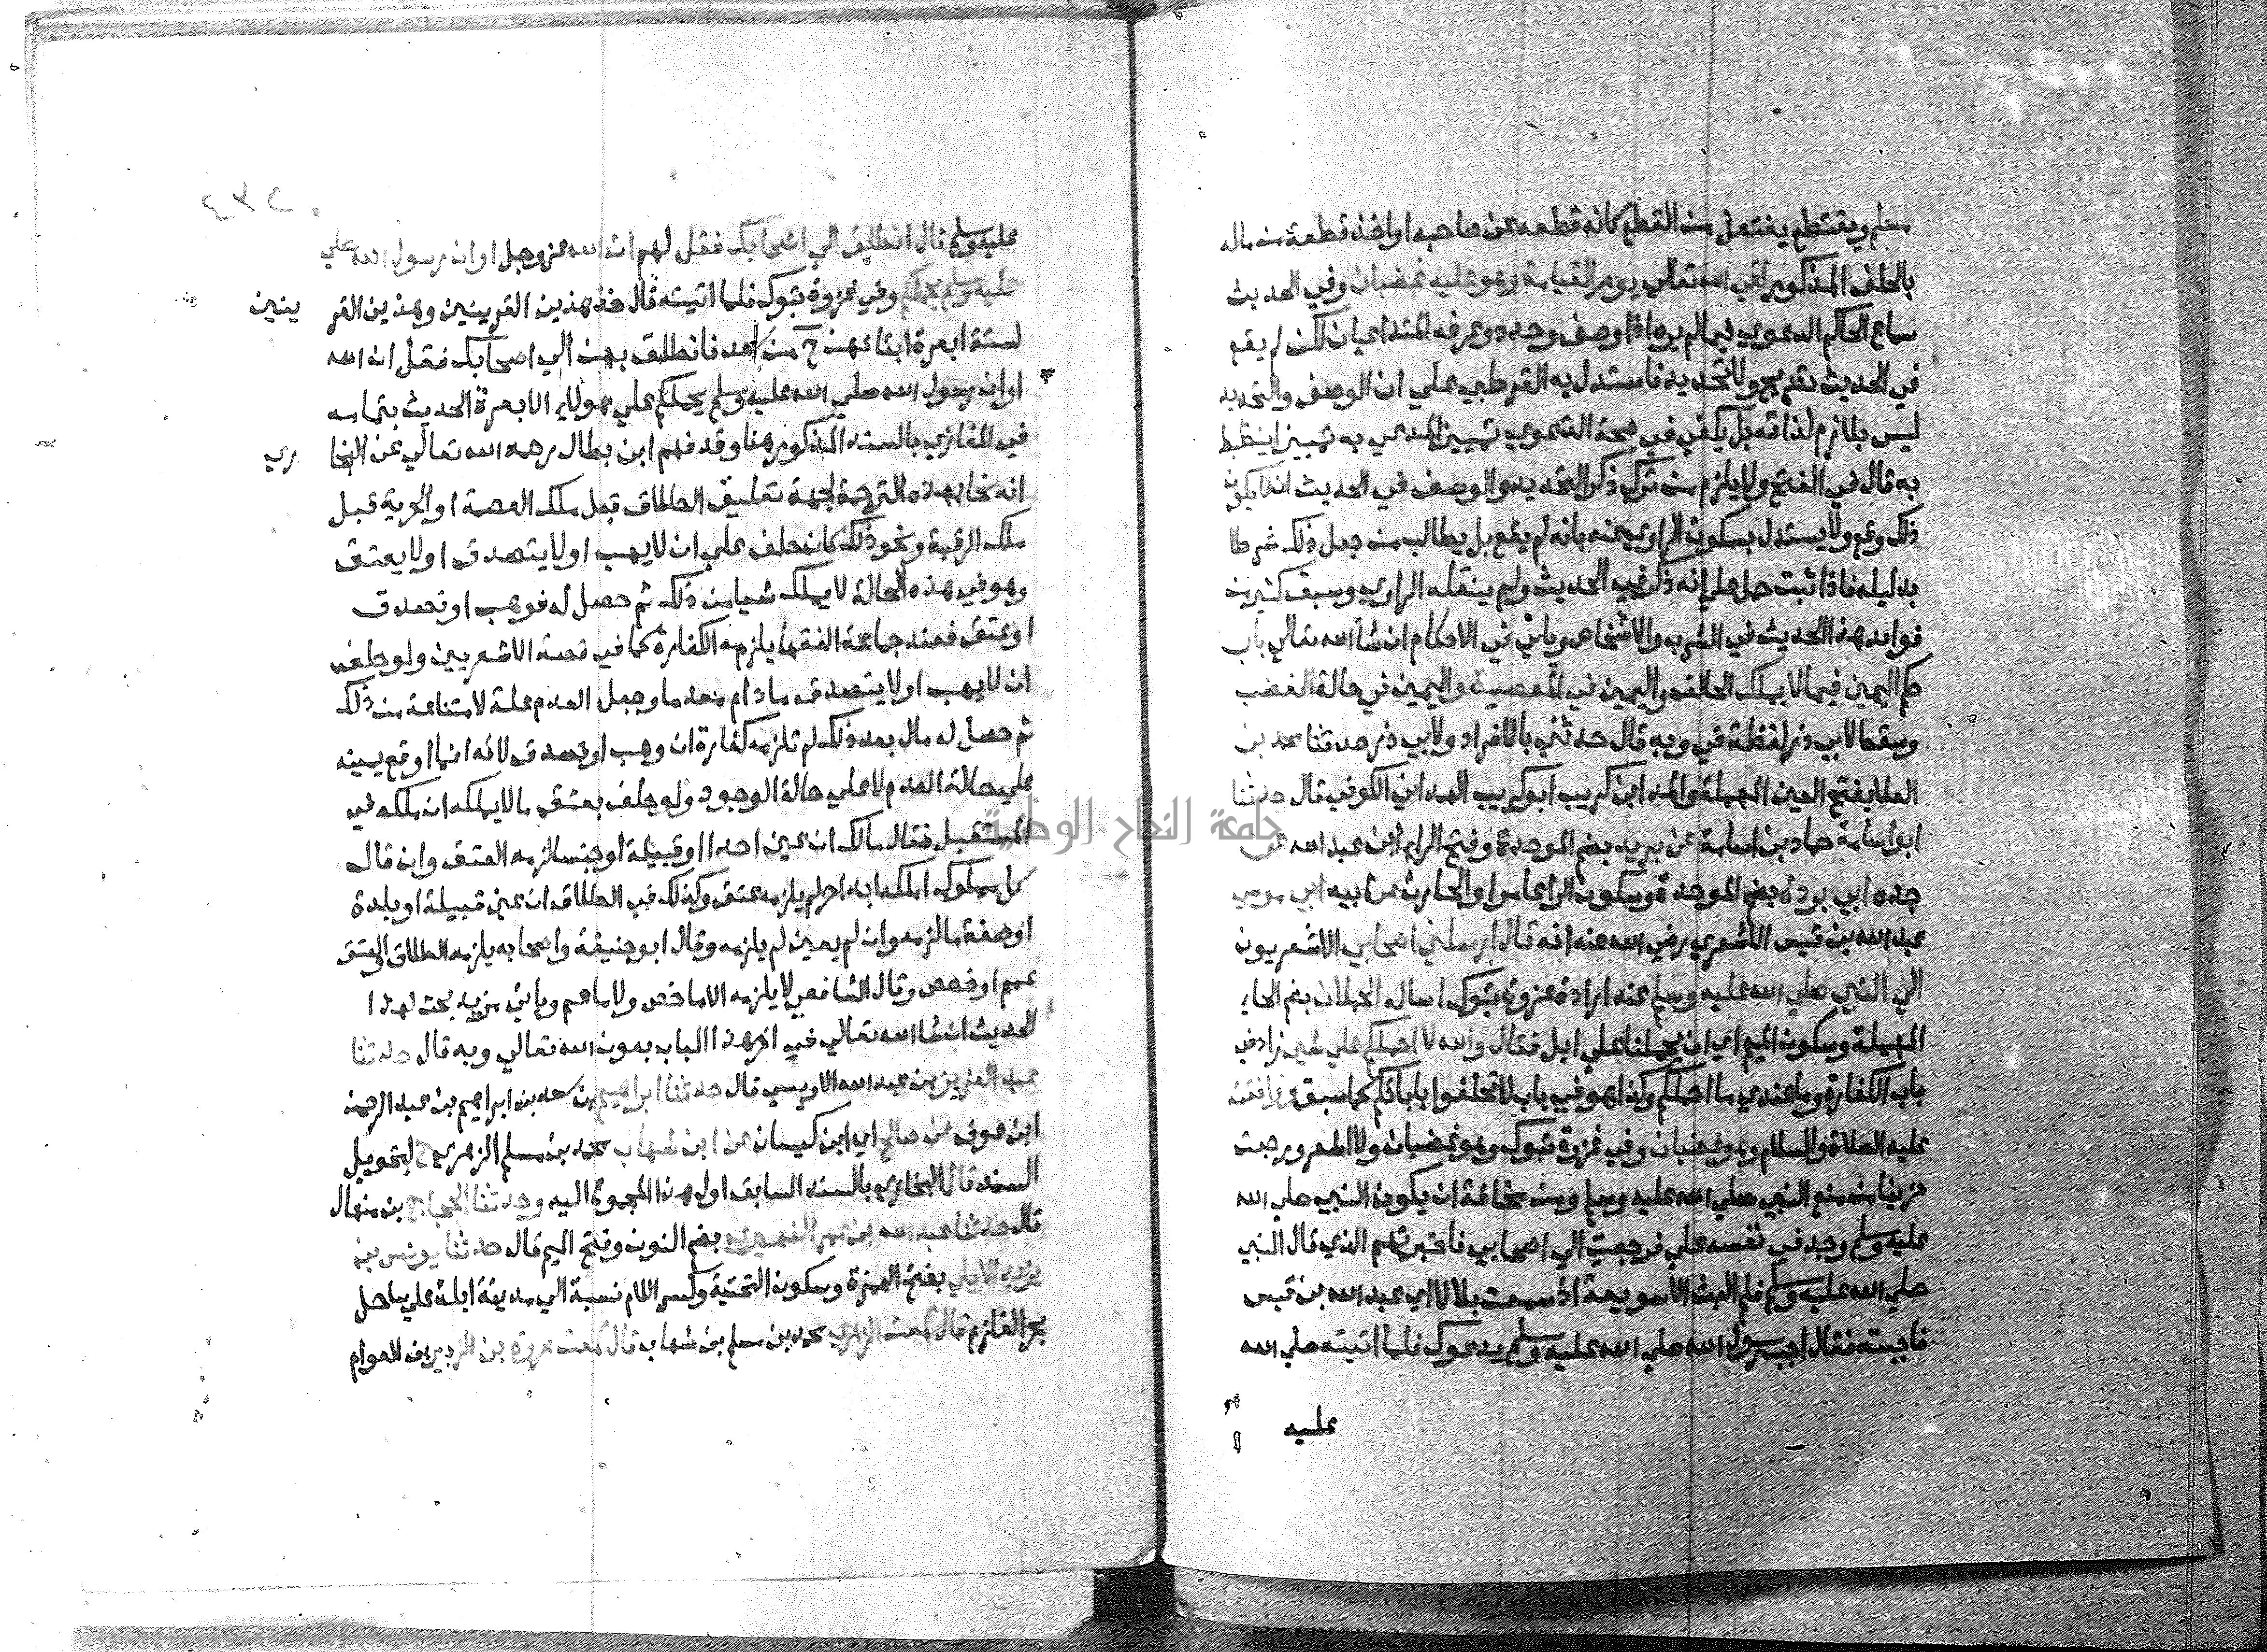 مسلم ويقتطع يفتعل من القطع كانه قطعه عن صاحبه او اخذ قطعة من ماله
بالحلف المذكور لقي الله تعالي يوم القيامة وهو عليه غضبان وفي الحديث
سماع الحاكم الدعوي فيما لم يره اذا وصف وحدد وعرفه المتداعيان لكن لم يقع
في الحديث تصريح ولا تحديد فاستدل به القرطبي علي ان الوصف والتحديد
ليس بلازم لذاته بل يكفي في صحة الدعوي تمييز المدعي به تمييزا ينضبط
به قال في الفتح ولا يلزم من ترك ذكر التحديد والوصف في الحديث ان لا يكون
ذلك وقع ولا يستدل بسكوت الراوي عنه بانه لم يقع بل يطالب من جعل ذلك شرطا
بدليله فاذا ثبت حمل علي انه ذكر في الحديث ولم ينقله الراوي وسبق كثير من
فوايد هذا الحديث في الشرب والاشخاص وياتي في الاحكام ان شا الله تعالي باب
حكم اليمين فيما لا يملك الحالف واليمين في المعصية واليمين في حالة الغضب
وسقط لابي ذر لفظة في وبه قال حدثني بالافراد ولابي ذر حدثنا محمد بن
العلا بفتح العين المهملة والمد ابن كريب ابو كريب الهمداني الكوفي قال حدثنا
ابو اسامة حماد بن اسامة عن بريد بضم الموحدة وفتح الرا ابن عبد الله عن
جده ابي بردة بضم الموحدة وسكون الرا عامر او الحارث عن ابيه ابي موسي
عبد الله بن قيس الاشعري رضي الله عنه انه قال ارسلني اصحابي الاشعريون
الي النبي صلي الله عليه وسلم عند ارادة غزوة تبوك اساله الحملان بضم الحاء
المهملة وسكون الميم اي ان يحملنا علي ابل فقال والله لا احملكم علي شي زاد في
باب الكفارة وما عندي ما احملكم وكذا هو في باب لا تحلفوا بابائكم كما سبق ووافقته
عليه الصلاة والسلام وهو غضبان وفي غزوة تبوك وهو غضبان ولا اشعر ورجعت
حزينا من منع النبي صلي الله عليه وسلم ومن مخافة ان يكون النبي صلي الله
عليه وسلم وجد في نفسه علي فرجعت الي اصحابي فاخبرتهم الذي قال النبي
صلي الله عليه وسلم فلم البث الا سويعة اذ سمعت بلالا اي عبد الله بن قيس
فاجبته فقال اجب رسول الله صلي الله عليه وسلم يدعوك فلما اتيته صلي الله
عليه
عليه وسلم قال انطلق الي اصحابك فقل لهم ان الله عز وجل او ان رسول الله صلي
عليه وسلم يحملكم وفي غزوة تبوك فلما اتيته قال خذ هذين القرينين وهذين القرينين
لستة ابعرة ابتاعهن ح من سعد فانطلق بهن الي اصحابك فقل ان الله
او ان رسول الله صلي الله عليه وسلم يحملكم علي هولاء الابعرة الحديث بتمامه
في المغازي بالسند المذكور هنا وقد فهم ابن بطال رحمه الله تعالي عن البخاري
انه نحا بهذه الترجمة لجهة تعليق الطلاق قبل ملك العصمة او الحرية قبل
ملك الرقبة ونحو ذلك كان حلف علي ان لا يهب او لا يتصدق او لا يعتق
وهو في هذه الحالة لا يملك شيا من ذلك ثم حصل له فوهب او تصدق
او عتق فعند جماعة الفقها يلزمه الكفارة كما في قصة الاشعريين ولو حلف
ان لا يهب او لا يتصدق ما دام معدما وجعل العدم علة لامتناعه من ذلك
ثم حصل له مال بعد ذلك لم تلزمه كفارة ان وهب او تصدق لانه انما اوقع يمينه
علي حالة العدم لا علي حالة الوجود ولو حلف بعتق ما لا يملكه ان ملكه في
المستقبل فقال مالك ان عين احدا او قبيلة او جنسا لزمه العتق وان قال
كل مملوك املكه ابدا حر لم يلزمه عتق وكذلك في الطلاق ان عين قبيلة او بلدة
او صفة ما لزمه وان لم يعين لم يلزمه وقال ابو حنيفة واصحابه يلزمه الطلاق والعتق
عمم او خصص وقال الشافعي لا يلزمه لا ما خص ولا ما عم وياتي مزيد بحث لهذا
الحديث ان شا الله تعالي في اخر هذا الباب بعون الله تعالي وبه قال حدثنا
عبد العزيز بن عبد الله الاويسي قال حدثنا ابراهيم بن سعد بن ابراهيم بن عبد الرحمن
ابن عوف عن صالح اي ابن كيسان عن ابن شهاب محمد بن مسلم الزهري ح لتحويل
السند قال البخاري بالسند السابق اول هذا المجموع اليه وحدثنا الحجاج بن منهال
قال حدثنا عبد الله بن عمر النميري بضم النون وفتح الميم قال حدثنا يونس بن
يزيد الايلي بفتح الهمزة وسكون التحتية وكسر اللام نسبة الي مدينة ايلة علي ساحل
بحر القلزم قال سمعت الزهري محمد بن مسلم بن شهاب قال سمعت عروة بن الزبير بن العوام
جامعة النجاح الوطنية